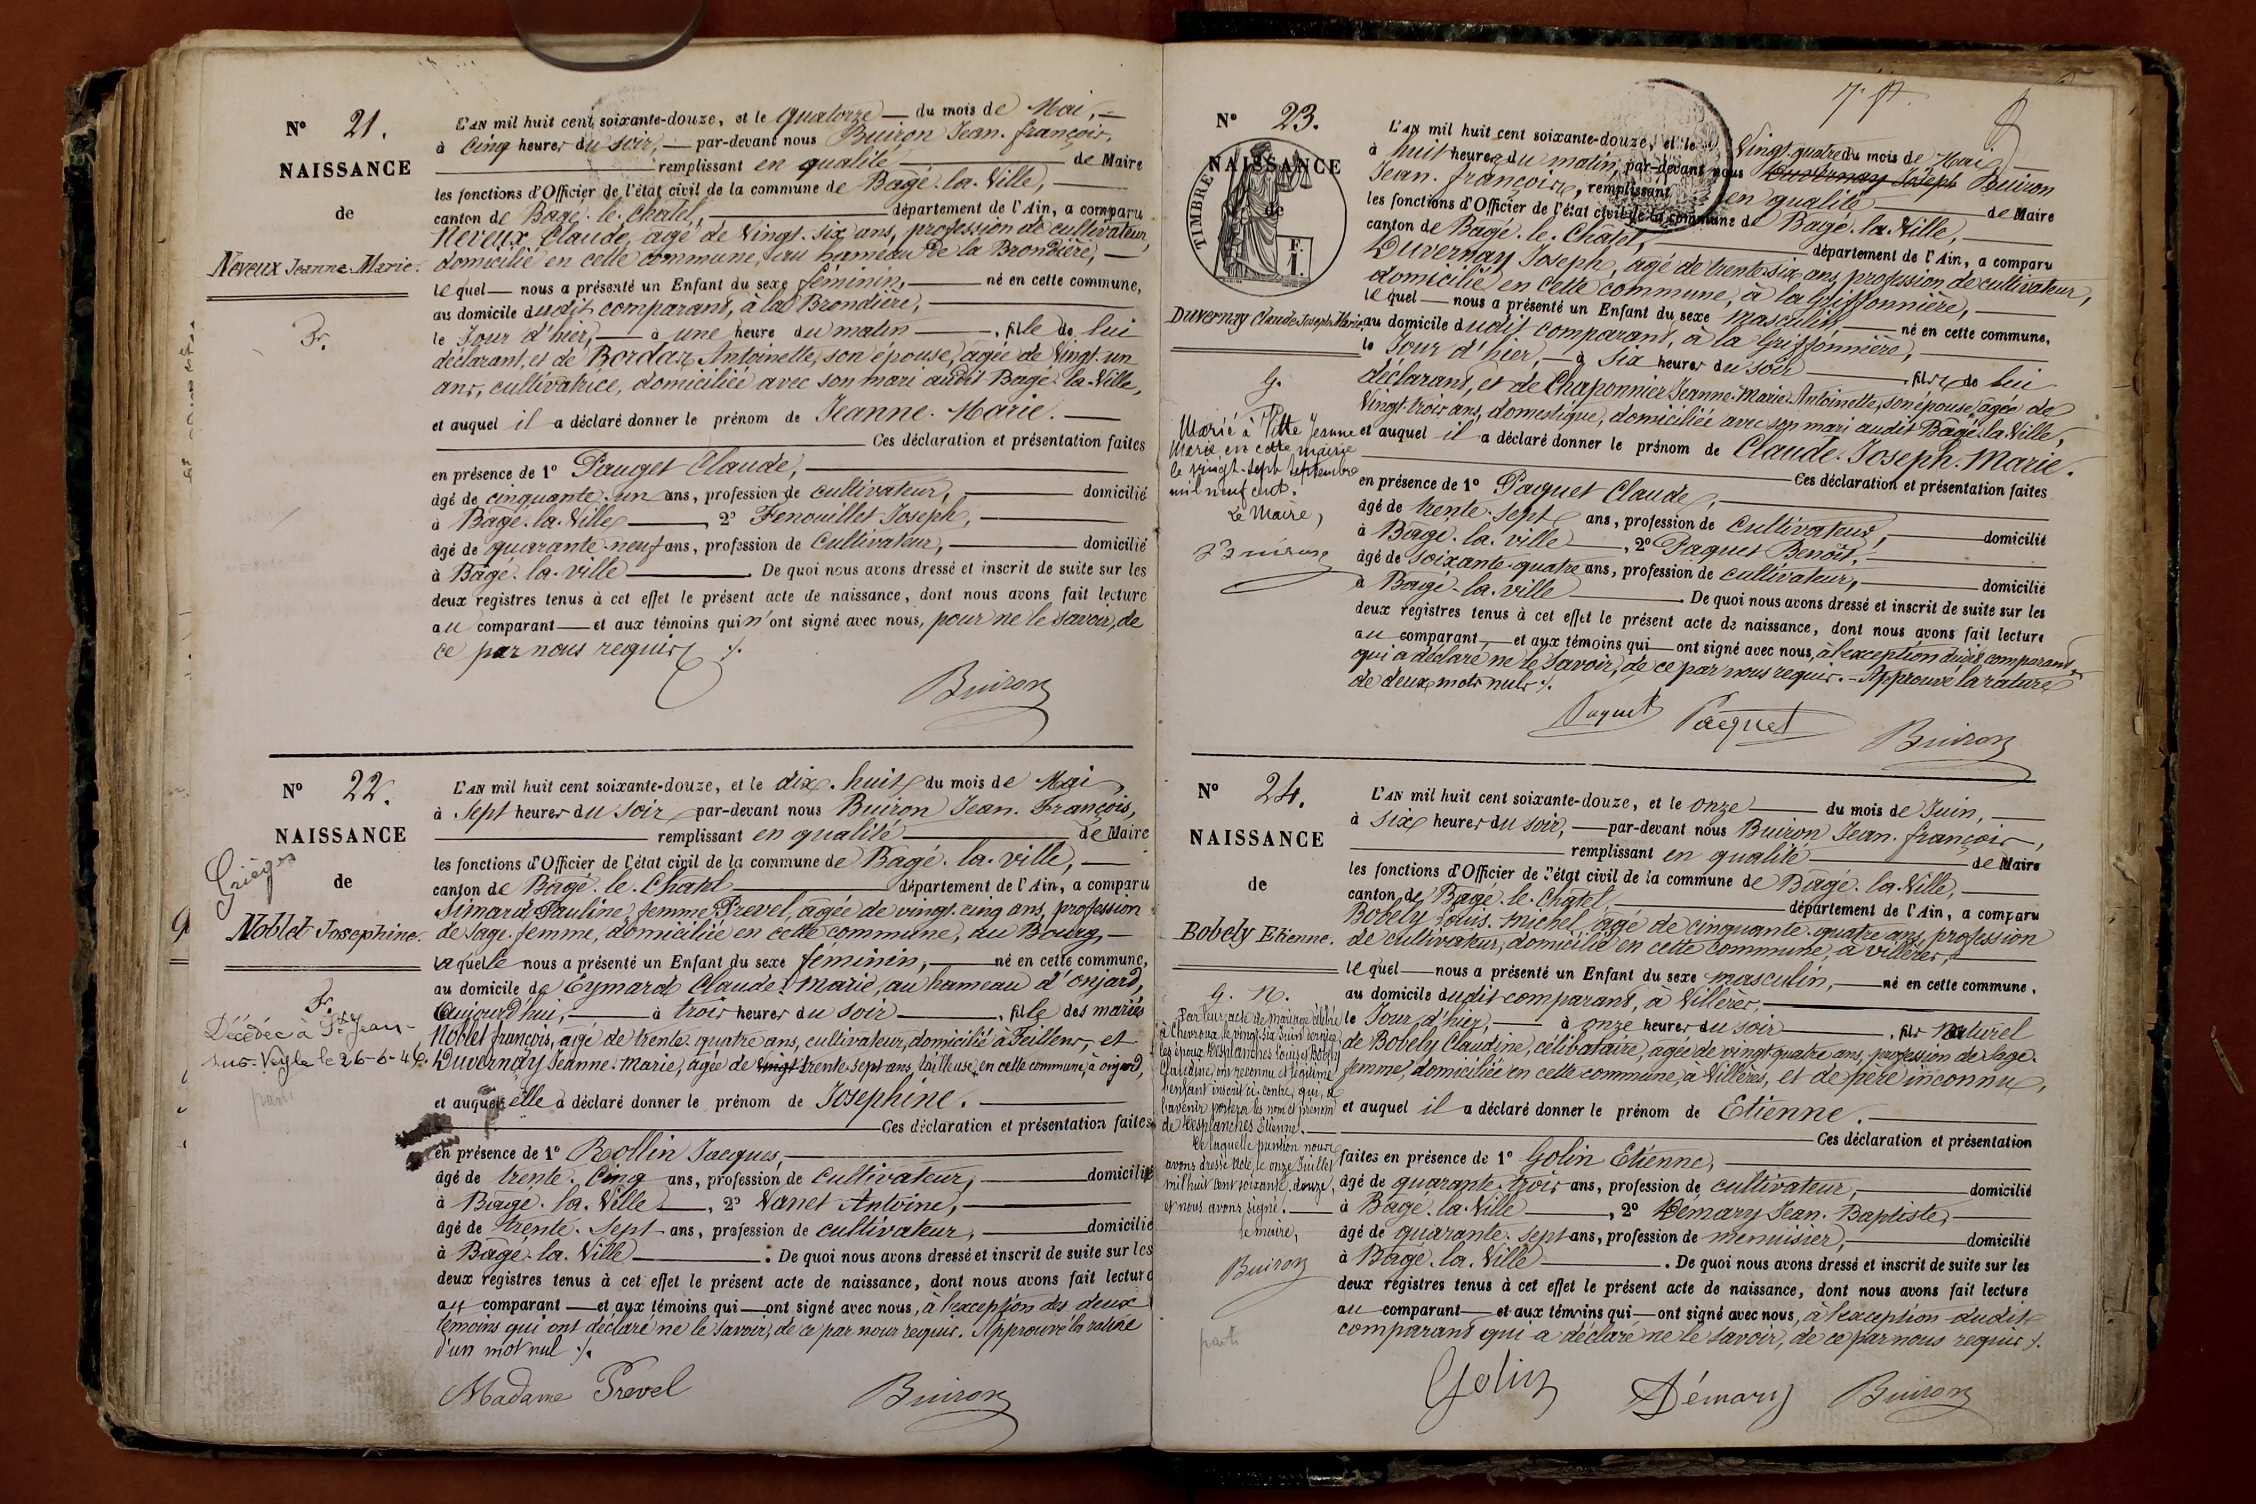 N° 21.
NAISSANCE
de
Neveux Jeanne-Marie.
Fr.
L'AN mil huit cent soixante-douze, et le quatorze du mois de Mai,
à cinq heures du soir, par-devant nous Buiron Jean-françois,
remplissant en qualité de Maire
les fonctions d'Officier de l'état civil de la commune de Bagé-la-Ville,
canton de Bagé-le-Châtel, département de l'Ain, a comparu
Neveux Claude, âgé de vingt-six ans, profession de cultivateur,
domicilié en cette commune, au hameau de la Brondière,
lequel nous a présenté un Enfant du sexe féminin, né en cette commune,
au domicile dudit comparant, à la Brondière,
le Jour d'hier, à une heure du matin, fille de lui
déclarant, et de Bordaz Antoinette, son épouse, âgée de vingt-un
ans, cultivatrice, domiciliée avec son mari audit Bagé-la-Ville,
et auquel il a déclaré donner le prénom de Jeanne-Marie.
Ces déclaration et présentation faites
en présence de 1° Pauget Claude,
âgé de cinquante-un ans, profession de cultivateur, domicilié
à Bagé-la-Ville, 2° Fenouillet Joseph,
âgé de quarante-neuf ans, profession de cultivateur, domicilié
à Bagé-la-ville. De quoi nous avons dressé et inscrit de suite sur les
deux registres tenus à cet effet le présent acte de naissance, dont nous avons fait lecture
au comparant et aux témoins qui n'ont signé avec nous, pour ne le savoir, de
ce par nous requis ./.
Buiron
N° 22.
NAISSANCE
de
Grièges
Noblet Josephine.
Fr.
Décédée à St Jean-
sur-Veyle le 26-6-46.
L'AN mil huit cent soixante-douze, et le dix-huit du mois de Mai,
à sept heures du soir par-devant nous Buiron Jean-François,
remplissant en qualité de Maire
les fonctions d'Officier de l'état civil de la commune de Bagé-la-ville,
canton de Bagé-le-Châtel département de l'Ain, a comparu
Simard Pauline, femme Prevel, âgée de vingt-cinq ans, profession
de sage-femme, domiciliée en cette commune, au Bourg,
laquelle nous a présenté un Enfant du sexe féminin, né en cette commune,
au domicile de Eymard Claude-Marie, au hameau d'onjard,
Aujourd'hui, à trois heures du soir, fille des mariés
Noblet françois, âgé de trente-quatre ans, cultivateur, domicilié à Feillens, et
Duvernay Jeanne-Marie, âgée de vingt trente-sept ans, tailleuse, en cette commune, à onjard,
et auquel elle a déclaré donner le prénom de Josephine.
Ces déclaration et présentation faites
en présence de 1° Rollin Jacques,
âgé de trente-cinq ans, profession de cultivateur, domicilié
à Bagé-la-Ville, 2° Vanet Antoine,
âgé de trente-sept ans, profession de cultivateur, domicilié
à Bagé-la-Ville. De quoi nous avons dressé et inscrit de suite sur les
deux registres tenus à cet effet le présent acte de naissance, dont nous avons fait lecture
au comparant et aux témoins qui ont signé avec nous, à l'exception des deux
témoins qui ont déclaré ne le savoir, de ce par nous requis. Approuvé la rature
d'un mot nul ./.
Madame Prevel
Buiron
N° 23.
NAISSANCE
de
TIMBRE
Duvernay Claude-Joseph-Marie.
G.
Marié à Pitte Jeanne
Marie, en cette mairie
le vingt-sept septembre
mil neuf cent.
Le Maire,
L'AN mil huit cent soixante-douze, et le Vingt-quatre du mois de Mai,
à huit heures du matin, par-devant nous Duvernay Joseph Buiron
Jean-françois, remplissant en qualité de Maire
les fonctions d'Officier de l'état civil de la commune de Bagé-la-Ville,
canton de Bagé-le-Châtel, département de l'Ain, a comparu
Duvernay Joseph, âgé de trente-six ans, profession de cultivateur,
domicilié en cette commune, à la Griffonnière,
lequel nous a présenté un Enfant du sexe masculin, né en cette commune,
au domicile dudit comparant, à la Griffonnière,
le Jour d'hier, à six heures du soir, fils de lui
déclarant, et de Chaponnier Jeanne-Marie-Antoinette, son épouse, âgée de
vingt-trois ans, domestique, domiciliée avec son mari audit Bagé-la-Ville,
et auquel il a déclaré donner le prénom de Claude-Joseph-Marie.
Ces déclaration et présentation faites
en présence de 1° Paquet Claude,
âgé de trente-sept ans, profession de cultivateur, domicilié
à Bagé-la-ville, 2° Paquet Benoît,
âgé de soixante-quatre ans, profession de cultivateur, domicilié
à Bagé-la-ville. De quoi nous avons dressé et inscrit de suite sur les
deux registres tenus à cet effet le présent acte de naissance, dont nous avons fait lecture
au comparant, et aux témoins qui ont signé avec nous, à l'exception dudit comparant
qui a déclaré ne le savoir, de ce par nous requis. - Approuvé la rature
de deux mots nuls ./.
Paquet Pacquet Buiron
N° 24.
NAISSANCE
de
Bobely Etienne.
G. N.
Par leur acte de mariage célébré
à Chevroux, le vingt-six Juin dernier,
les époux Desplanches Louis et Bobely
Claudine, ont reconnu et légitimé
l'enfant inscrit ci-contre, qui, à
l'avenir portera les nom et prénom
de Desplanches Etienne.
De laquelle mention nous
avons dressé acte, le onze Juillet
mil huit cent soixante-douze,
et nous avons signé.
Le maire,
Buiron
L'AN mil huit cent soixante-douze, et le onze du mois de Juin,
à six heures du soir, par-devant nous Buiron Jean-françois,
remplissant en qualité de Maire
les fonctions d'Officier de l'état civil de la commune de Bagé-la-Ville,
canton de Bagé-le-Châtel, département de l'Ain, a comparu
Bobely Louis-Michel, âgé de cinquante-quatre ans, profession
de cultivateur, domicilié en cette commune, à Villères,
lequel nous a présenté un Enfant du sexe masculin, né en cette commune,
au domicile dudit comparant, à Villères,
le Jour d'hier, à onze heures du soir, fils naturel
de Bobely Claudine, célibataire, âgée de vingt-quatre ans, profession de sage-
femme, domiciliée en cette commune, à Villères, et de père inconnu,
et auquel il a déclaré donner le prénom de Etienne.
Ces déclaration et présentation
faites en présence de 1° Golin Etienne,
âgé de quarante-trois ans, profession de cultivateur, domicilié
à Bagé-la-Ville, 2° Démary Jean-Baptiste,
âgé de quarante-sept ans, profession de menuisier, domicilié
à Bagé-la-Ville. De quoi nous avons dressé et inscrit de suite sur les
deux registres tenus à cet effet le présent acte de naissance, dont nous avons fait lecture
au comparant et aux témoins qui ont signé avec nous, à l'exception dudit
comparant qui a déclaré ne le savoir, de ce par nous requis ./.
Golin Démary Buiron